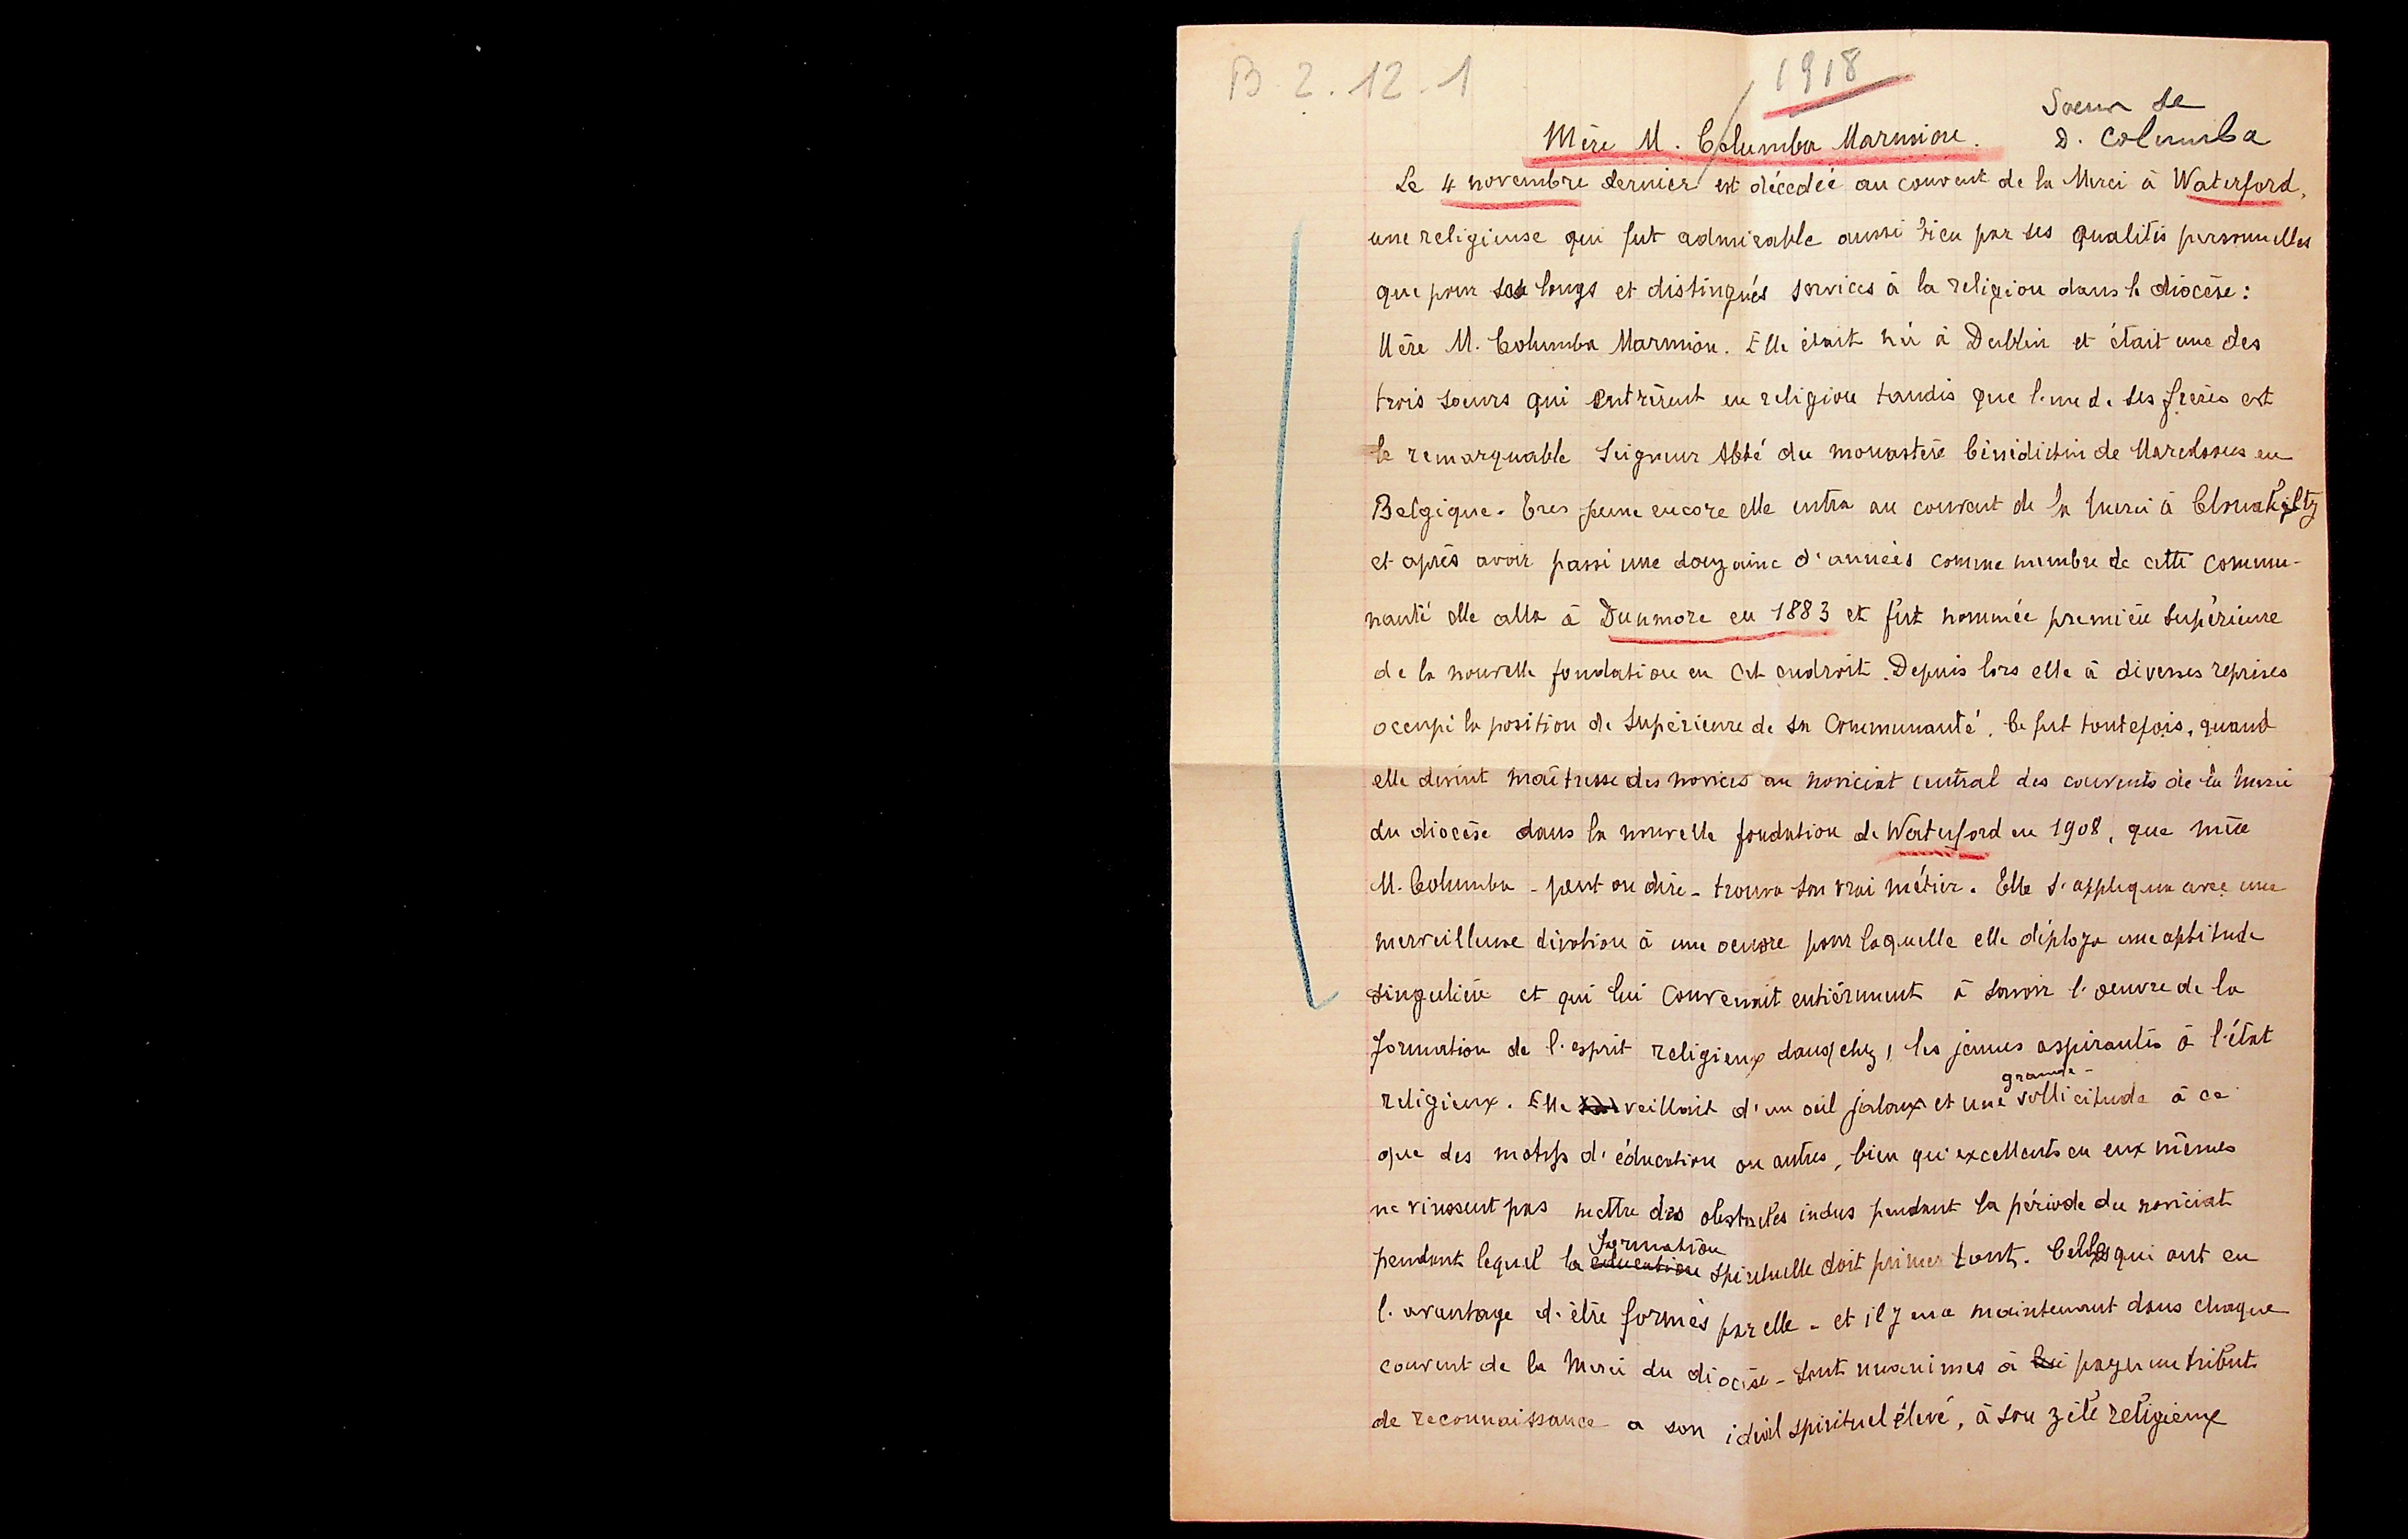 B. 2. 12. 1
1918
Soeur de
D. Columba
Mère M. Columba Marmion.
Le 4 novembre dernier est décédée au couvent de la Merci à Waterford,
une religieuse qui fut admirable aussi bien par ses qualités personnelles
que pour ses longs et distingués services à la religion dans le diocèse :
Mère M. Columba Marmion. Elle était née à Dublin et était une des
trois soeurs qui entrèrent en religion tandis que l'un de ses frères est
le remarquable Seigneur Abbé du monastère bénédictin de Maredsous en
Belgique. Tres jeune encore elle entra au couvent de la Merci à Clonakilty
et après avoir passé une douzaine d'années comme membre de cette commu-
nauté elle alla à Dunmore en 1883 et fut nommée première supérieure
de la nouvelle fondation en cet endroit. Depuis lors elle à diverses reprises
occupé la position de Supérieure de sa Communauté. Ce fut toutefois, quand
elle devint maîtresse des novices au noviciat central des couvents de la Merci
du diocèse dans la nouvelle fondation de Waterford en 1908, que mère
M. Columba - peut on dire - trouva son vrai métier. Elle s'appliqua avec une
merveilleuse dévotion à une oeuvre pour laquelle elle déploya une aptitude
singulière et qui lui convenait entièrement à savoir l'oeuvre de la
formation de l'esprit religieux dans (chez) les jeunes aspirantes à l'état
religieux. Elle veillait d'un oeil jaloux et une grande sollicitude à ce
que des motifs d'éducation ou autres, bien qu'excellents en eux mêmes
ne vinssent pas mettre des obstacles indus pendant la période du noviciat
pendant lequel la education formation spirituelle doit primer tout. Celles qui ont eu
l'avantage d'être formés par elle - et il y en a maintenant dans chaque
couvent de la Merci du diocèse - sont unanimes à lui payer un tribut
de reconnaissance a son idéal spirituel élevé, à son zèle religieux